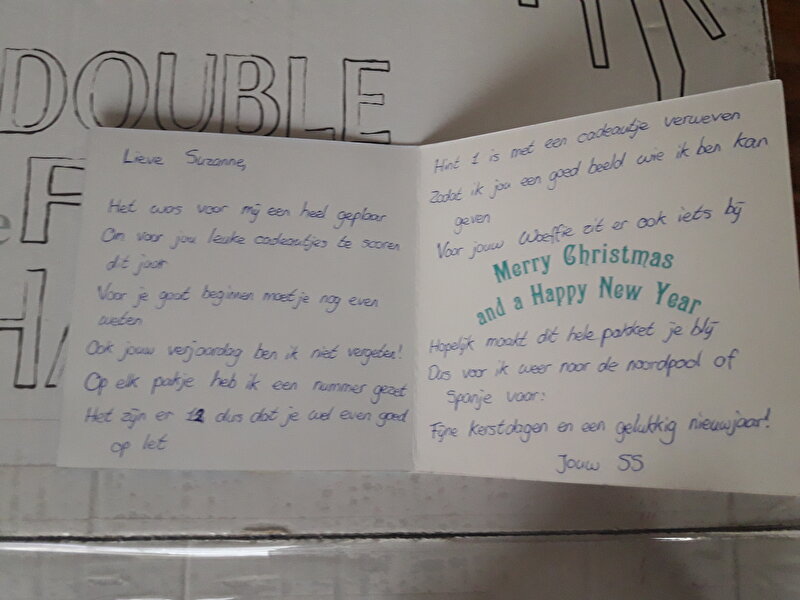 DOUBLE
Lieve Suzanne,
Het was voor mij een heel geplaar
Om voor jou leuke cadeautjes te scoren
dit jaar
Voor je gaat beginnen moet je nog even
weten
Ook jouw verjaardag ben ik niet vergeten!
Op elk pakje heb ik een nummer gezet
Het zijn er 12 dus dat je wel even goed
op let
Hint 1 is met een cadeautje verweven
Zodat ik jou een goed beeld wie ik ben kan
geven
Voor jouw Woeffie zit er ook iets bij
Merry Christmas
and a Happy New Year
Hopelijk maakt dit hele pakket je blij
Dus voor ik weer naar de noordpool of
Spanje vaar:
Fijne kerstdagen en een gelukkig nieuwjaar!
Jouw SS